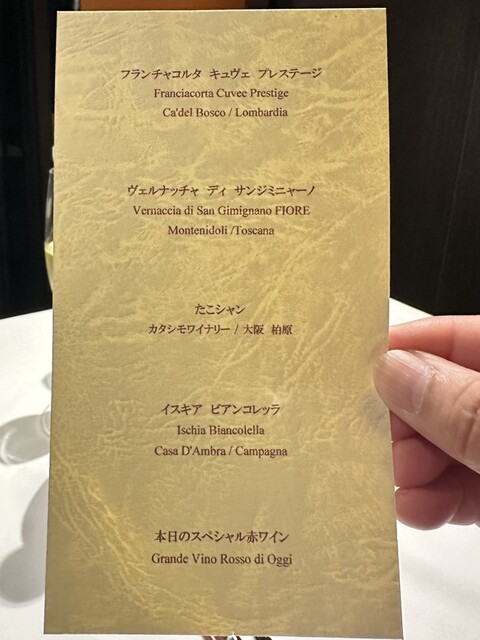 フランチャコルタ キュヴェ プレステージ
Franciacorta Cuvee Prestige
Ca'del Bosco / Lombardia
ヴェルナッチャ ディ サンジミニャーノ
Vernaccia di San Gimignano FIORE
Montenidoli /Toscana
たこシャン
カタシモワイナリー / 大阪 柏原
イスキア ビアンコレッラ
Ischia Biancolella
Casa D'Ambra / Campagna
本日のスペシャル赤ワイン
Grande Vino Rosso di Oggi